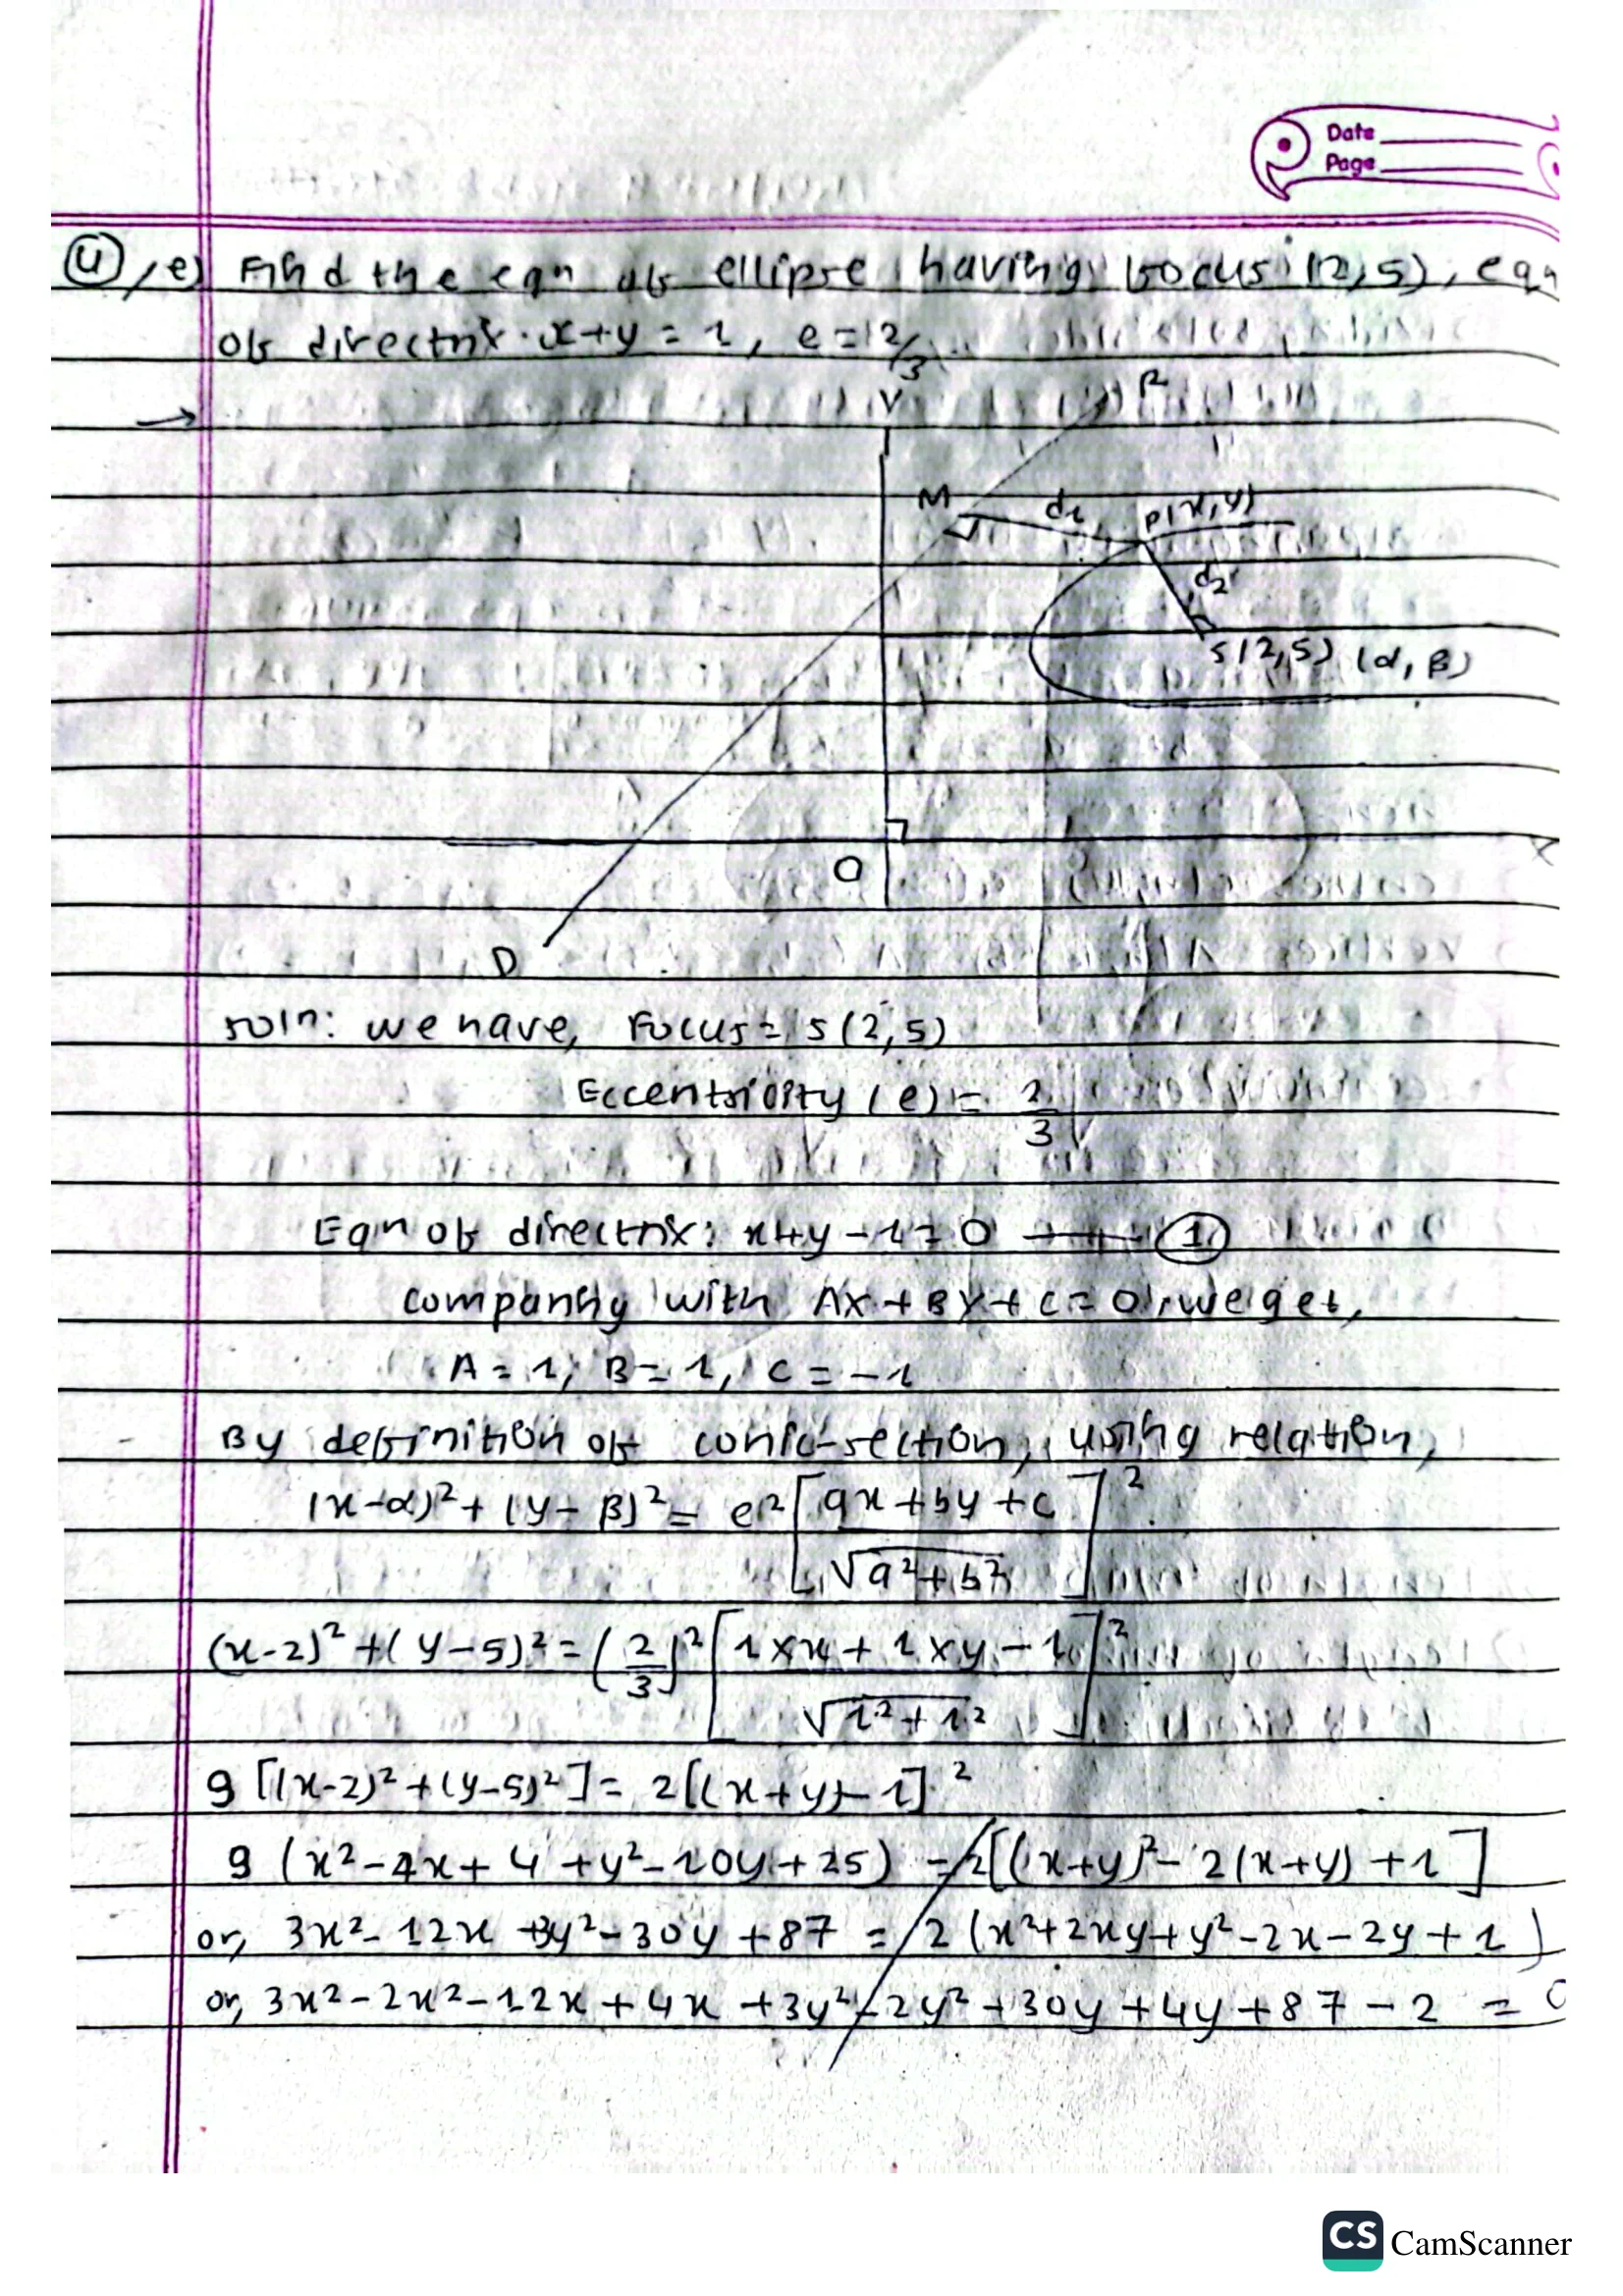 Date
Page
4, e) Find the eqn of ellipse having focus (2,5), eqn
of directrix x+y = 1, e = 2/3
→
Y
R
M
d1
P(x,y)
d2
S(2,5) (α, β)
O
D
soln: we have, Focus = S(2,5)
Eccentricity (e) = 2/3
Eqn of directrix: x+y-1=0 — ①
comparing with Ax + By + C = 0, we get,
A = 1, B = 1, C = -1
By definition of conic-section, using relation,
(x-α)² + (y-β)² = e² [ax + by + c / √a²+b²]²
(x-2)² + (y-5)² = (2/3)² [1×x + 1×y - 1 / √1²+1²]²
9 [(x-2)² + (y-5)²] = 2[(x+y)-1]²
9 (x²-4x+4+y²-10y+25) = 2[(x+y)²-2(x+y)+1]
or, 3x²-12x+3y²-30y+87 = 2(x²+2xy+y²-2x-2y+1)
or, 3x²-2x²-12x+4x+3y²-2y²+30y+4y+87-2 = 0
CS CamScanner